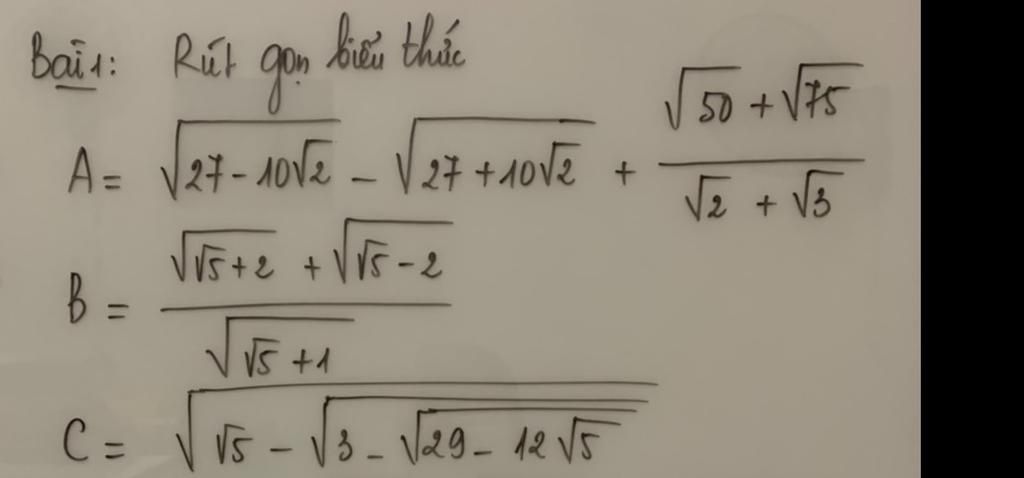 Bài 1: Rút gọn biểu thức
A = √(27 - 10√2) - √(27 + 10√2) + (√50 + √75)/(√2 + √3)
B = (√(√5 + 2) + √(√5 - 2))/√(√5 + 1)
C = √(√5 - √(3 - √(29 - 12√5)))